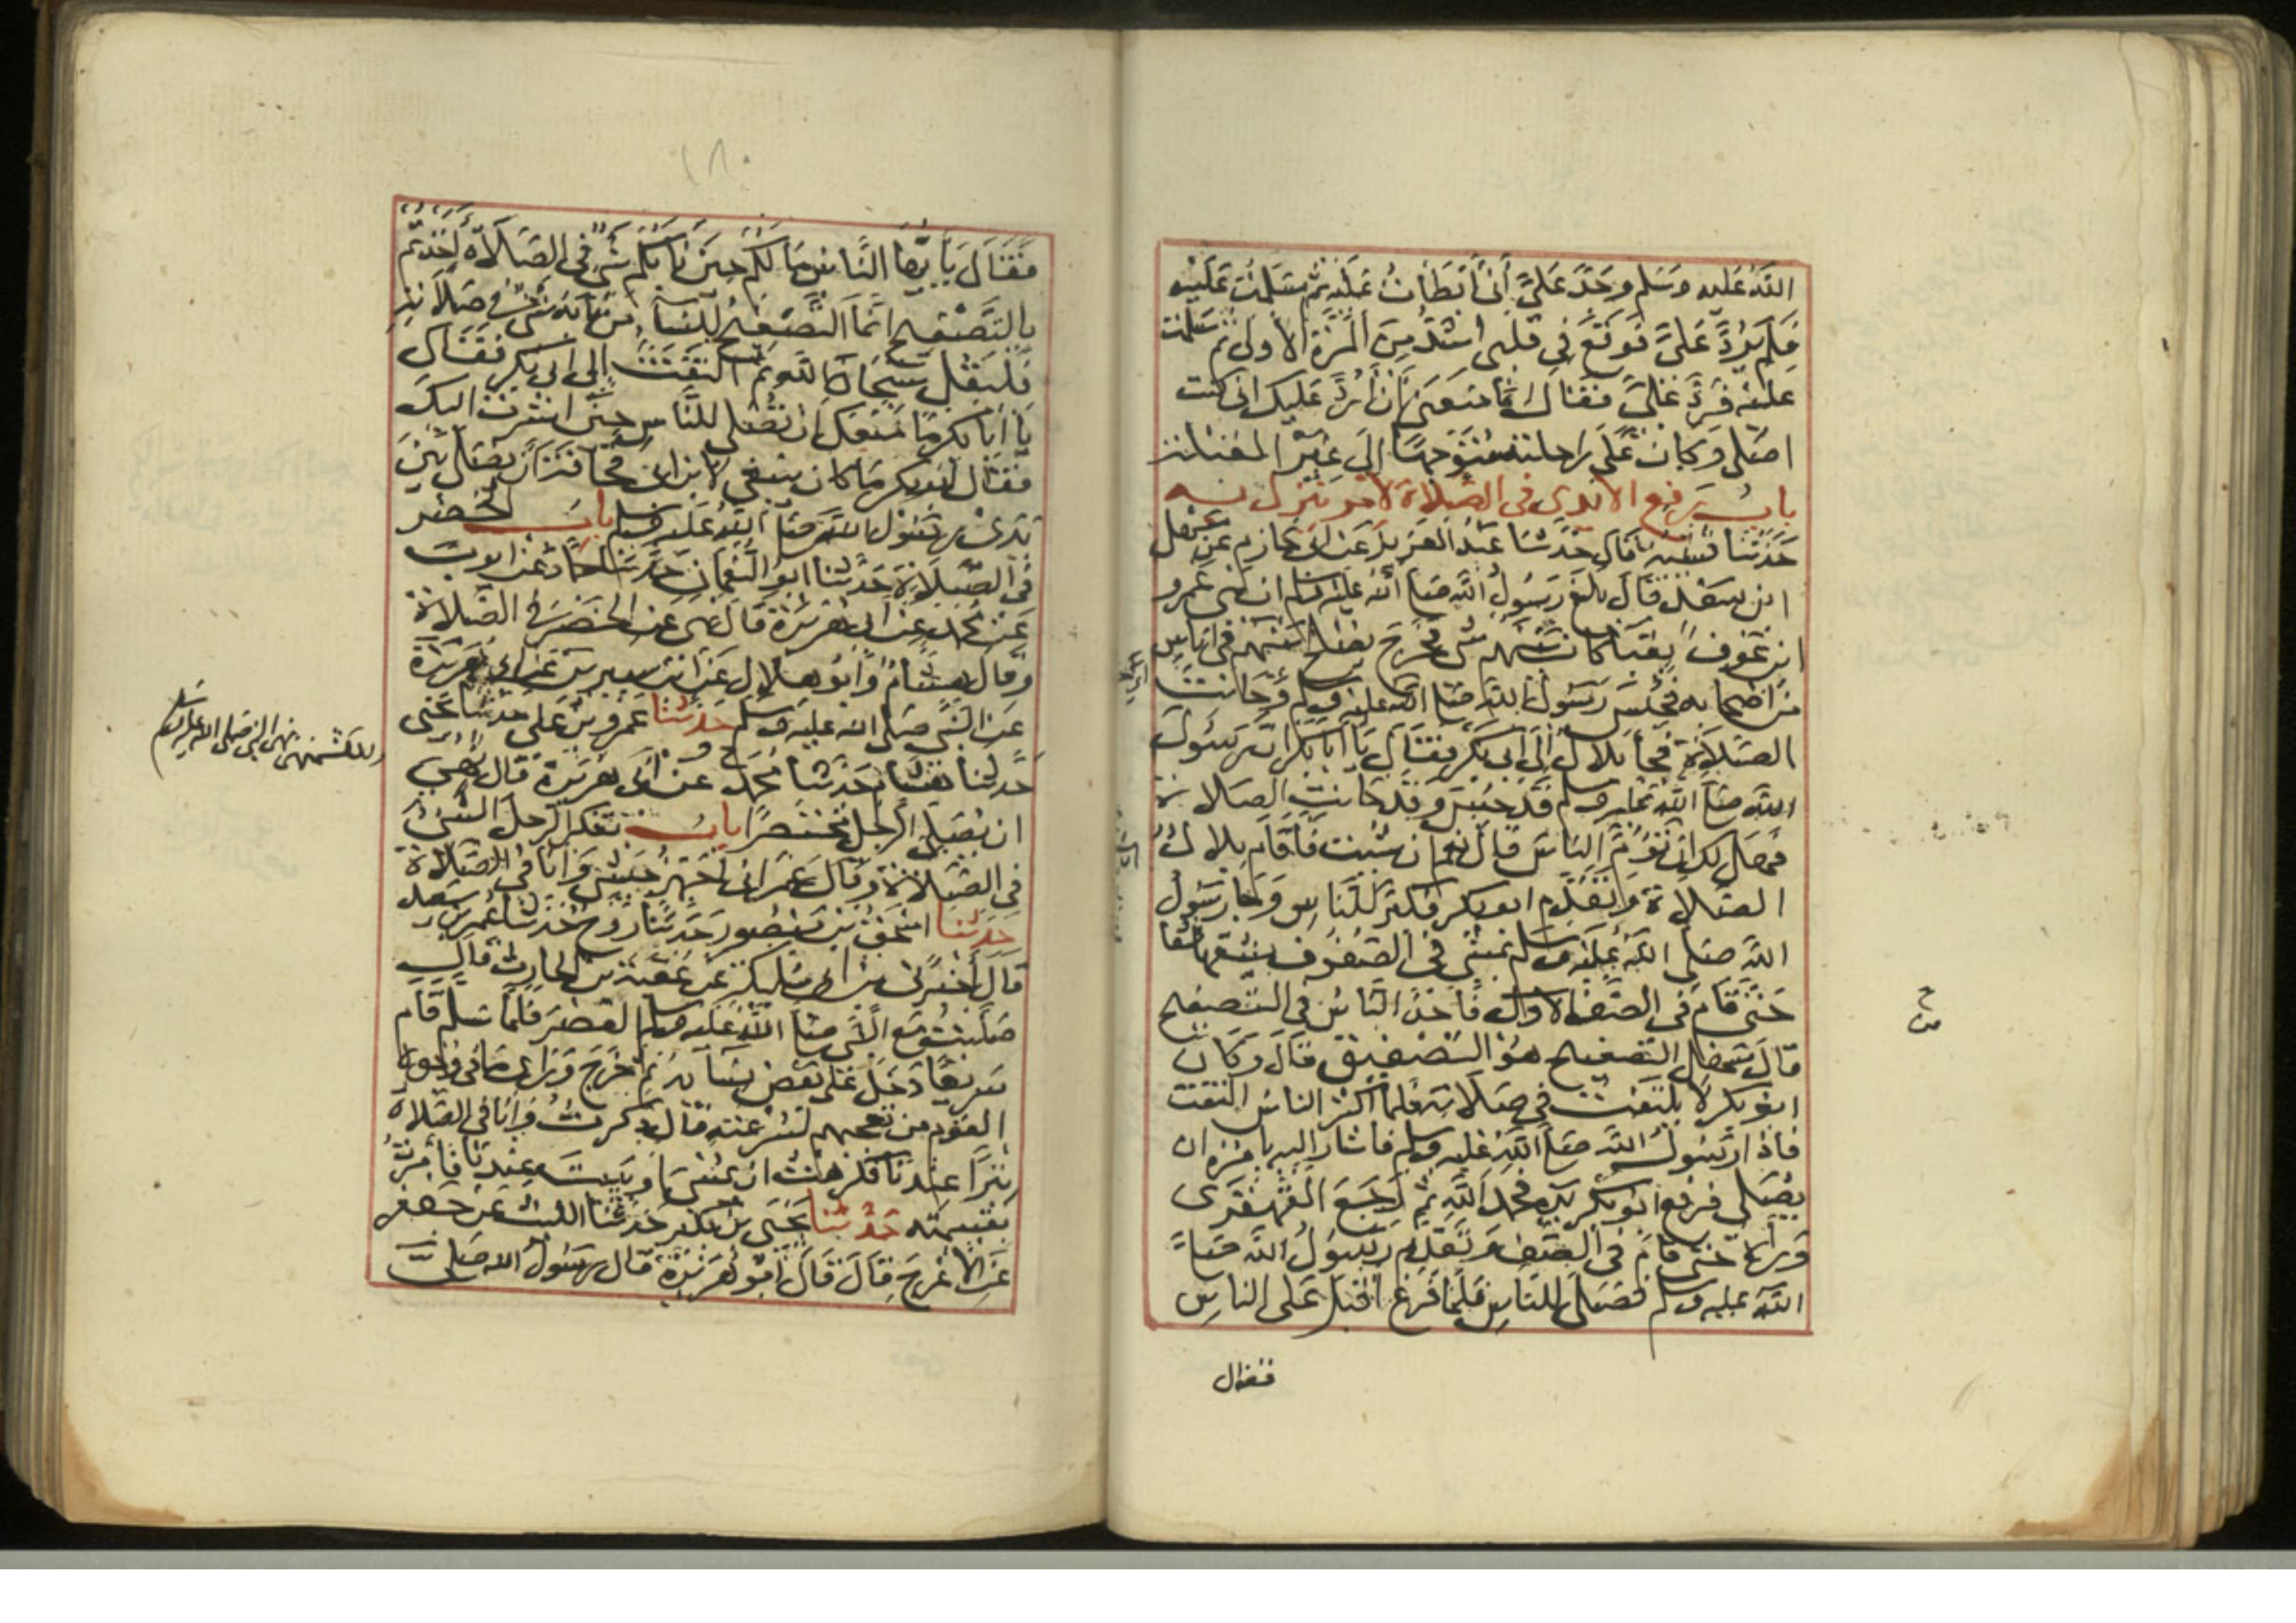 الله عليه وسلم وجد علي أني أبطأت عليه ثم سلمت عليه
فلم يرد علي فوقع في قلبي أشد من المرة الأولى ثم سلمت
عليه فرد علي فقال ما منعني أن أرد عليك اني كنت
اصلي وكان على راحلته متوجها إلى غير القبلة
باب رفع الأيدي في الصلاة لأمر ينزل به
حدثنا قتيبة قال حدثنا عبد العزيز عن ابي حازم عن سهل
ابن سعد قال بلغ رسول الله صلى الله عليه وسلم ان بني عمرو
ابن عوف بقبا كان بينهم شي فخرج يصلح بينهم في اناس
من اصحابه فحبس رسول الله صلى الله عليه وسلم وحانت
الصلاة فجا بلال إلى ابي بكر فقال يا أبا بكر ان رسول
الله صلى الله عليه وسلم قد حبس وقد حانت الصلاة
فهل لك ان تؤم الناس قال نعم ان شئت فأقام بلال
الصلاة وتقدم ابو بكر فكبر للناس وجا رسول
الله صلى الله عليه وسلم يمشي في الصفوف يشقها شقا
حتى قام في الصف الأول فأخذ الناس في التصفيح
قال سهل التصفيح هو التصفيق قال وكان
ابو بكر لا يلتفت في صلاته فلما اكثر الناس التفت
فاذا رسول الله صلى الله عليه وسلم فأشار اليه يأمره ان
يصلي فرفع ابو بكر يده فحمد الله ثم رجع القهقرى
وراءه حتى قام في الصف وتقدم رسول الله صلى
الله عليه وسلم فصلى للناس فلما فرغ اقبل على الناس
فقال
فقال يا أيها الناس ما لكم حين نابكم شي في الصلاة أخذتم
بالتصفيح انما التصفيح للنساء من نابه شي في صلاته
فليقل سبحان الله ثم التفت إلى ابي بكر فقال
يا أبا بكر ما منعك أن تصلي للناس حين اشرت اليك
فقال ابو بكر ما كان ينبغي لابن ابي قحافة أن يصلي بين
يدي رسول الله صلى الله عليه وسلم باب الخصر
في الصلاة حدثنا ابو النعمان حدثنا حماد عن ايوب
عن محمد عن ابي هريرة قال نهي عن الخصر في الصلاة
وقال هشام وأبو هلال عن ابن سيرين عن ابي هريرة
عن النبي صلى الله عليه وسلم حدثنا عمرو بن علي حدثنا يحيى
حدثنا هشام حدثنا محمد عن أبي هريرة قال نهي
ان يصلي الرجل مختصرا باب تفكر الرجل الشيء
في الصلاة وقال عمر اني لأجهز جيشي وأنا في الصلاة
حدثنا اسحق بن منصور حدثنا روح حدثنا عمر بن سعيد
قال أخبرني ابن أبي مليكة عن عقبة بن الحارث قال
صليت مع النبي صلى الله عليه وسلم العصر فلما سلم قام
سريعا دخل على بعض نسائه ثم خرج ورأى ما في وجوه
القوم من تعجبهم لسرعته فقال ذكرت وأنا في الصلاة
تبرا عندنا فكرهت ان يمسي أو يبيت عندنا فأمرت
بقسمته حدثنا يحيى بن بكير حدثنا الليث عن جعفر
عن الأعرج قال قال أبو هريرة قال رسول الله صلى
نهى النبي صلى الله عليه وسلم